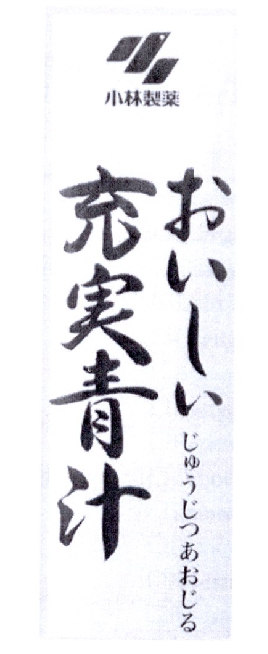 小林製薬
おいしい
じゅうじつあおじる
充実青汁